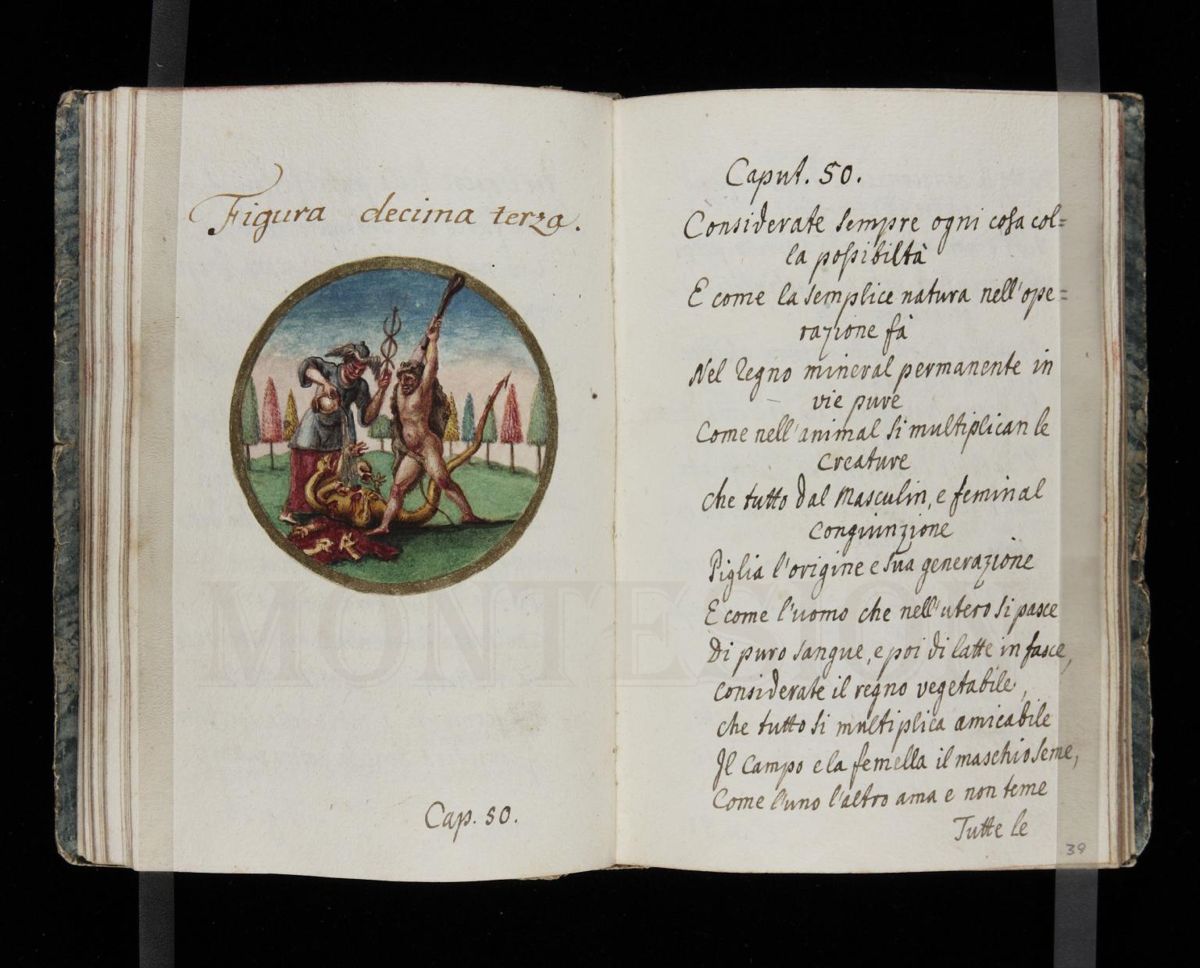 Figura decima terza.
Cap. 50.
Caput. 50.
Considerate sempre ogni cosa col=
la possibiltà
E come la semplice natura nell'ope=
razione fà
Nel Regno mineral permanente in
vie pure
Come nell'animal si multiplican le
creature
che tutto dal Masculin, e feminal
congiunzione
Piglia l'origine e sua generazione
E come l'uomo che nell'utero si pasce
Di puro sangue, e poi di latte in fasce,
considerate il regno vegetabile,
che tutto si multiplica amicabile
Il Campo e la femella il maschio seme,
Come l'uno l'altro ama e non teme
Tutte le
39